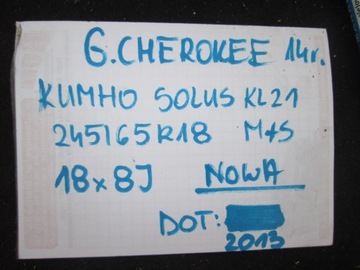 G. CHEROKEE 14r.
KUMHO SOLUS KL21
245/65R18 M+S
18x8J NOWA
DOT:
2013